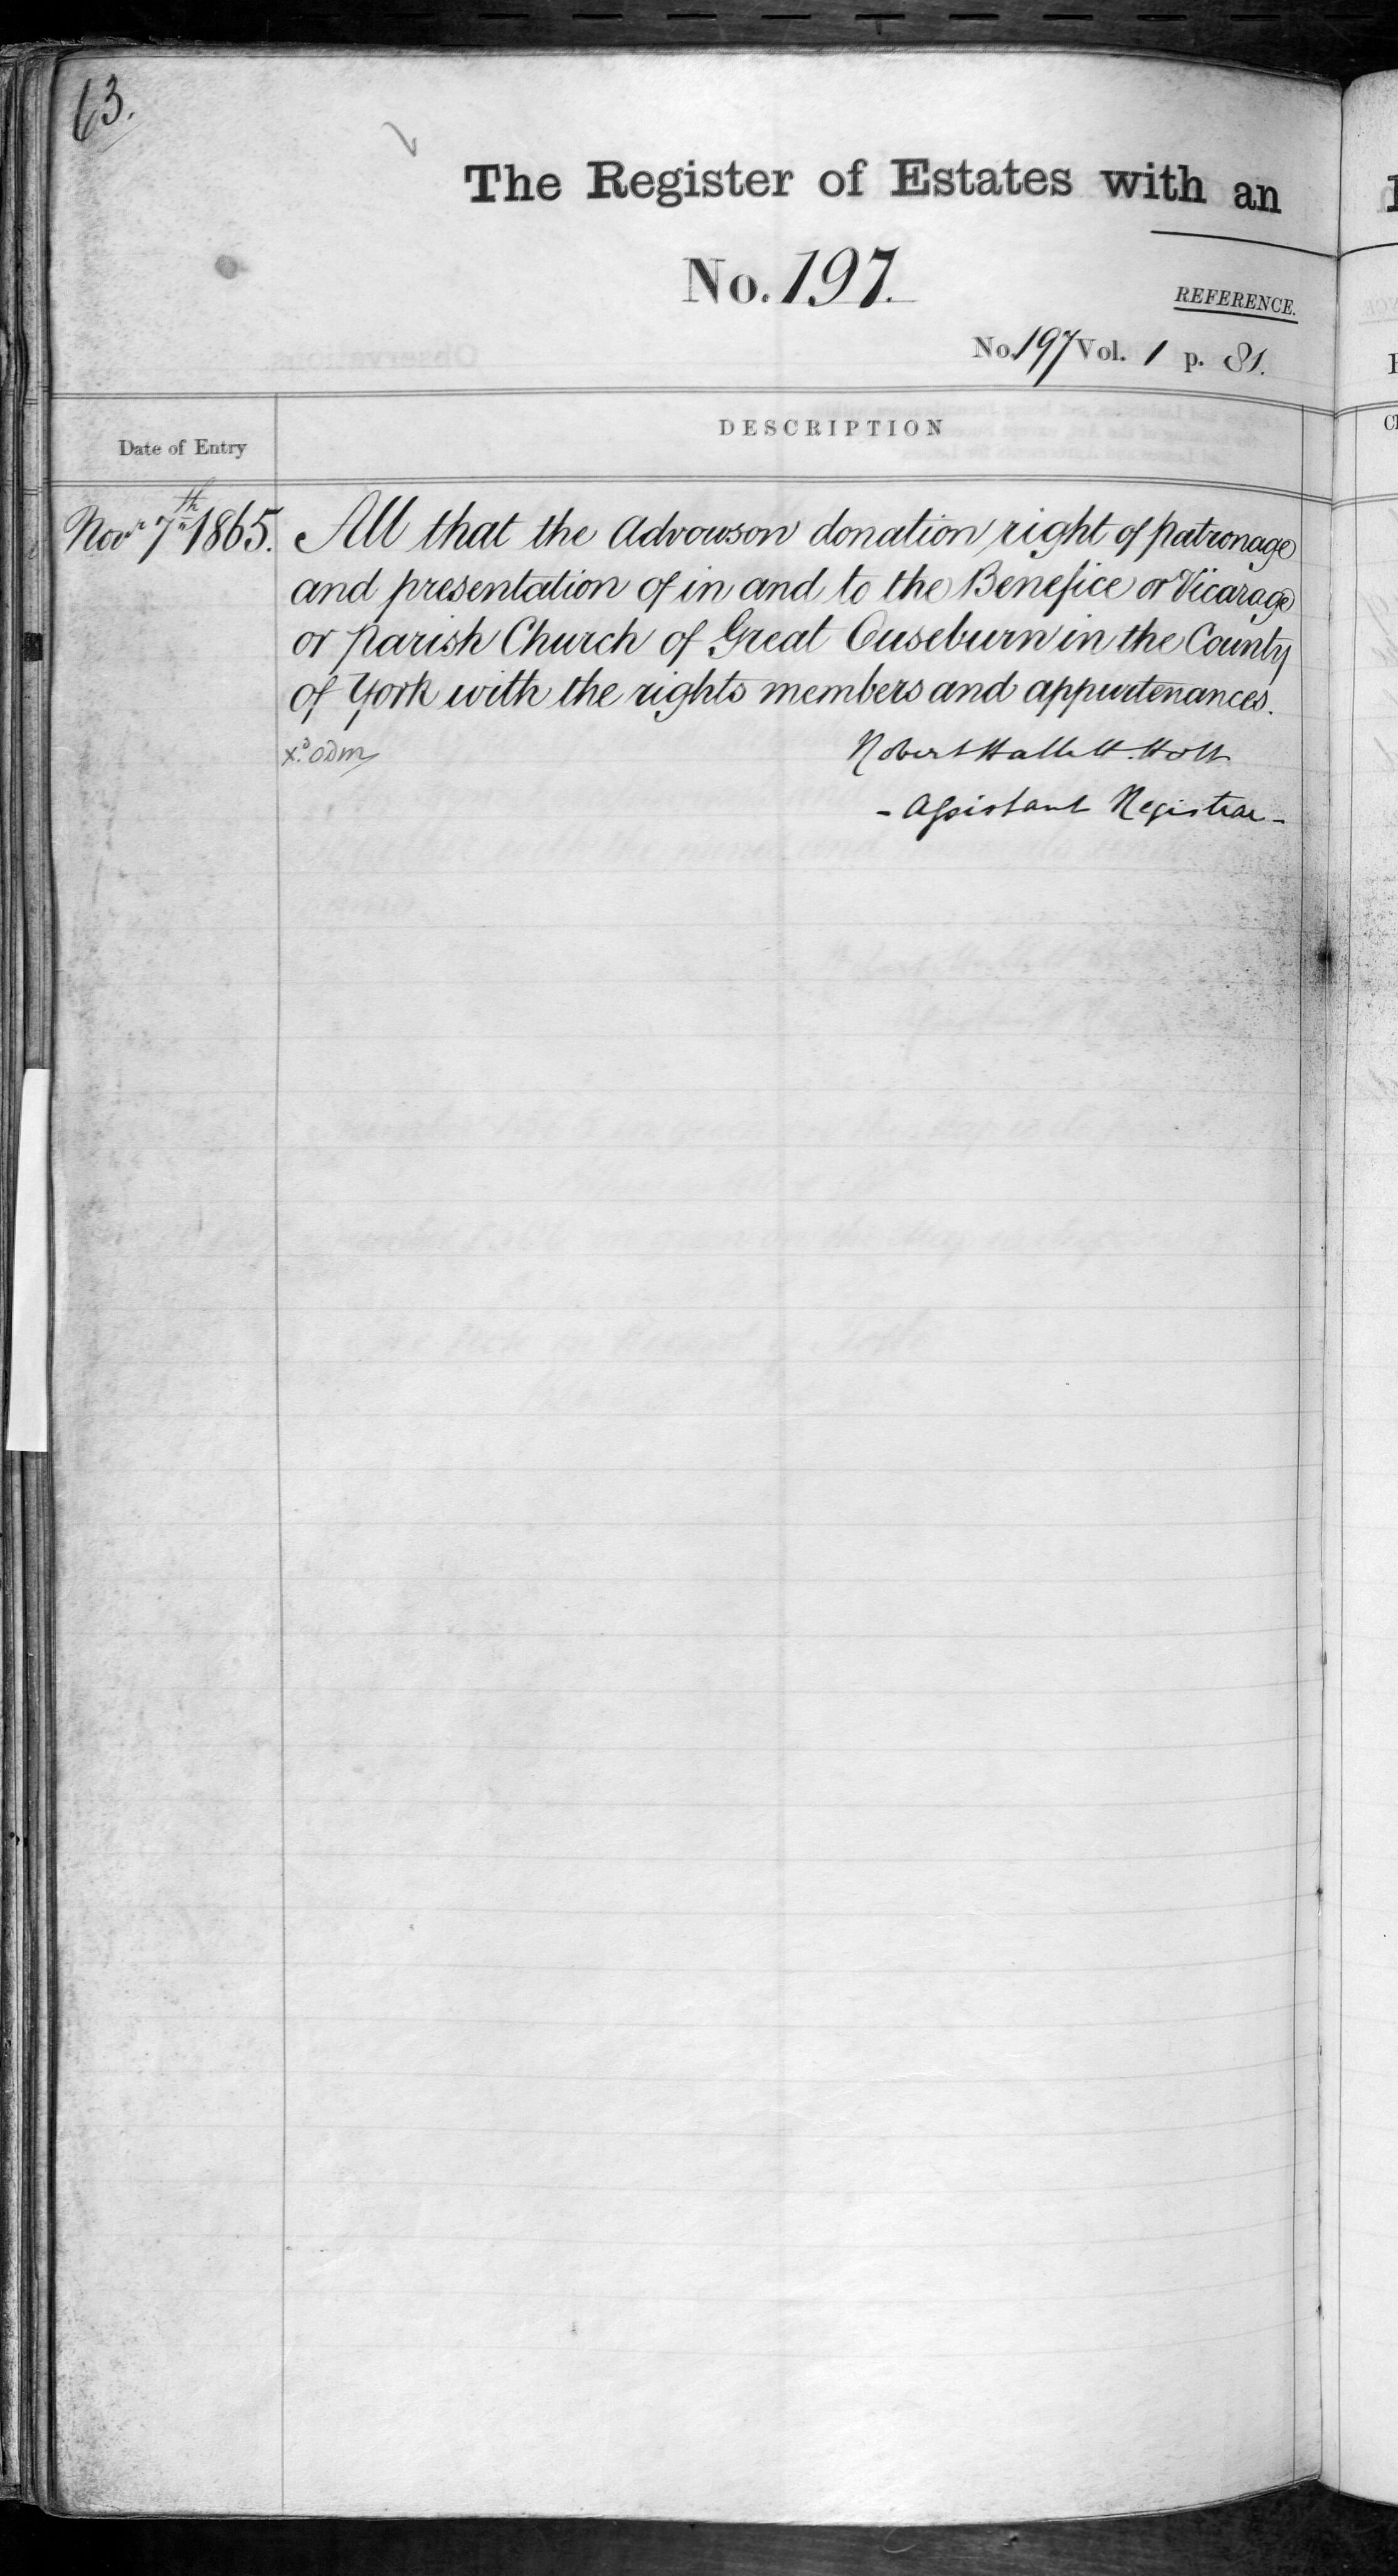 63.
The Register of Estates with an
No. 197.
REFERENCE.
No. 197 Vol. 1 p. 81.
Date of Entry
DESCRIPTION
Novr 7th 1865.
All that the Advowson donation right of patronage
and presentation of in and to the Benefice or Vicarage
or parish Church of Great Ouseburn in the County
of York with the rights members and appurtenances.
Robert Hallett Holt
- Assistant Registrar -